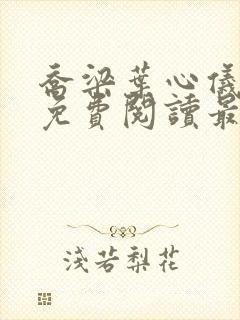 喬梁葉心儀
免費閱讀最
淺若梨花